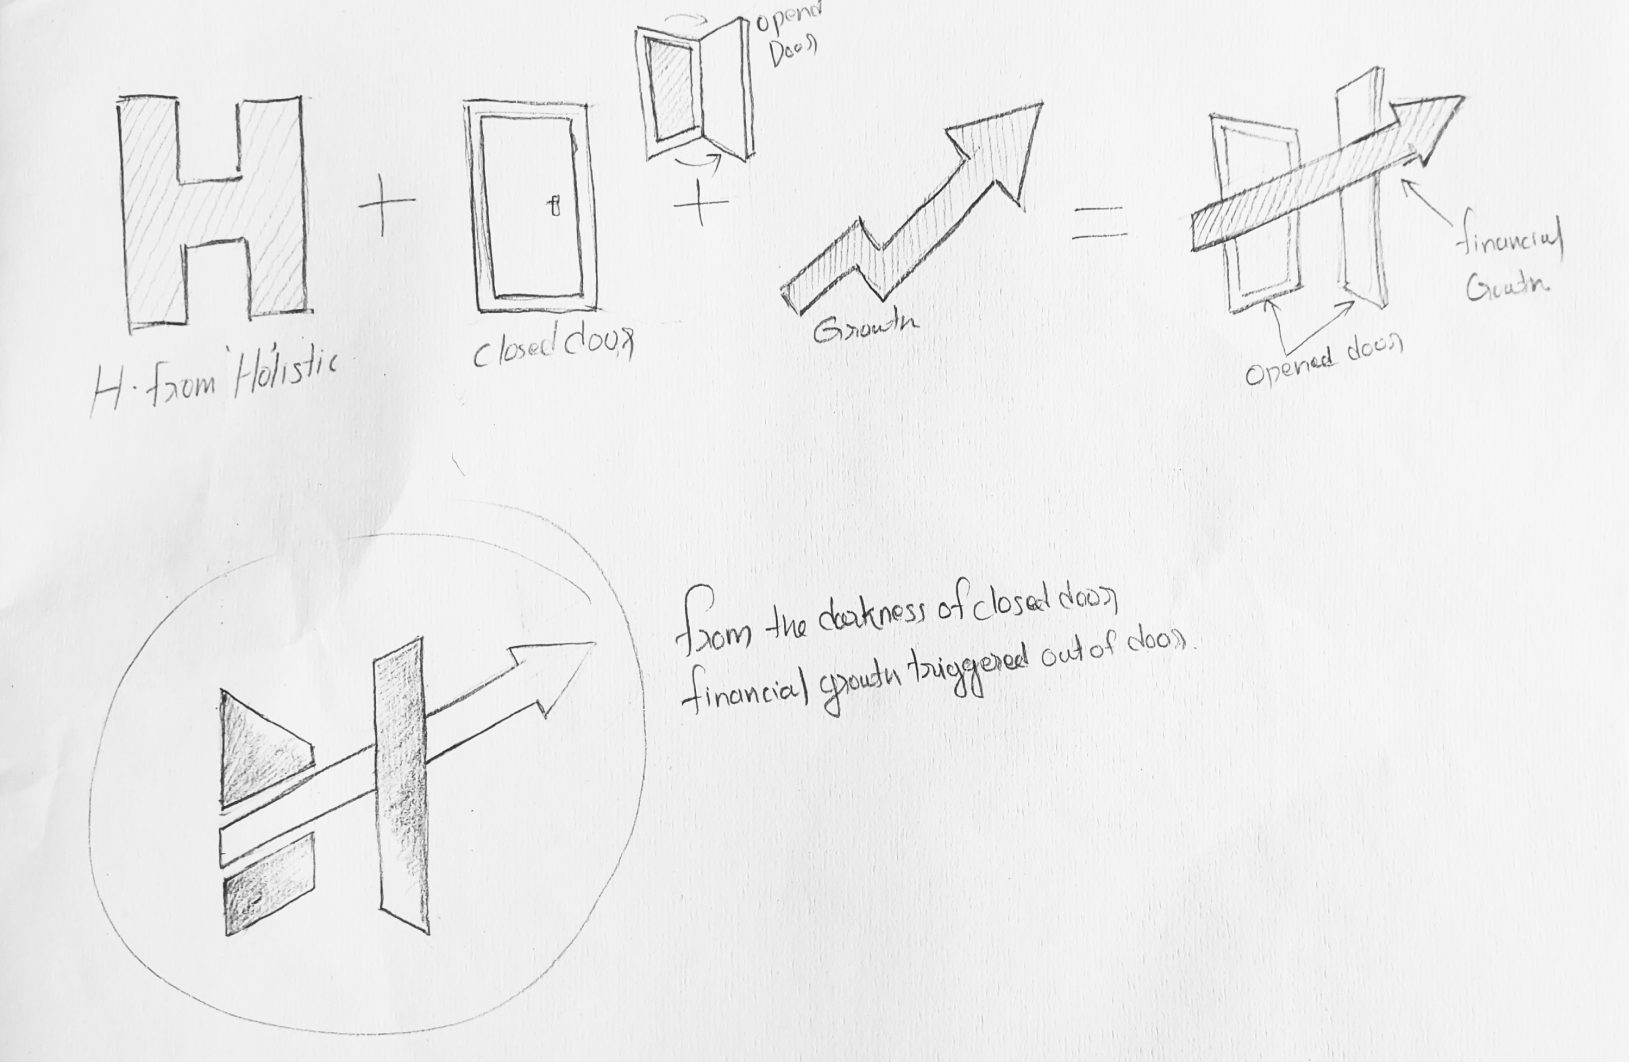 opend
Door
H. from 'Holistic
Closed door
Growth
financial
Growth
Opened door
from the darkness of closed door
financial growth triggered out of door.